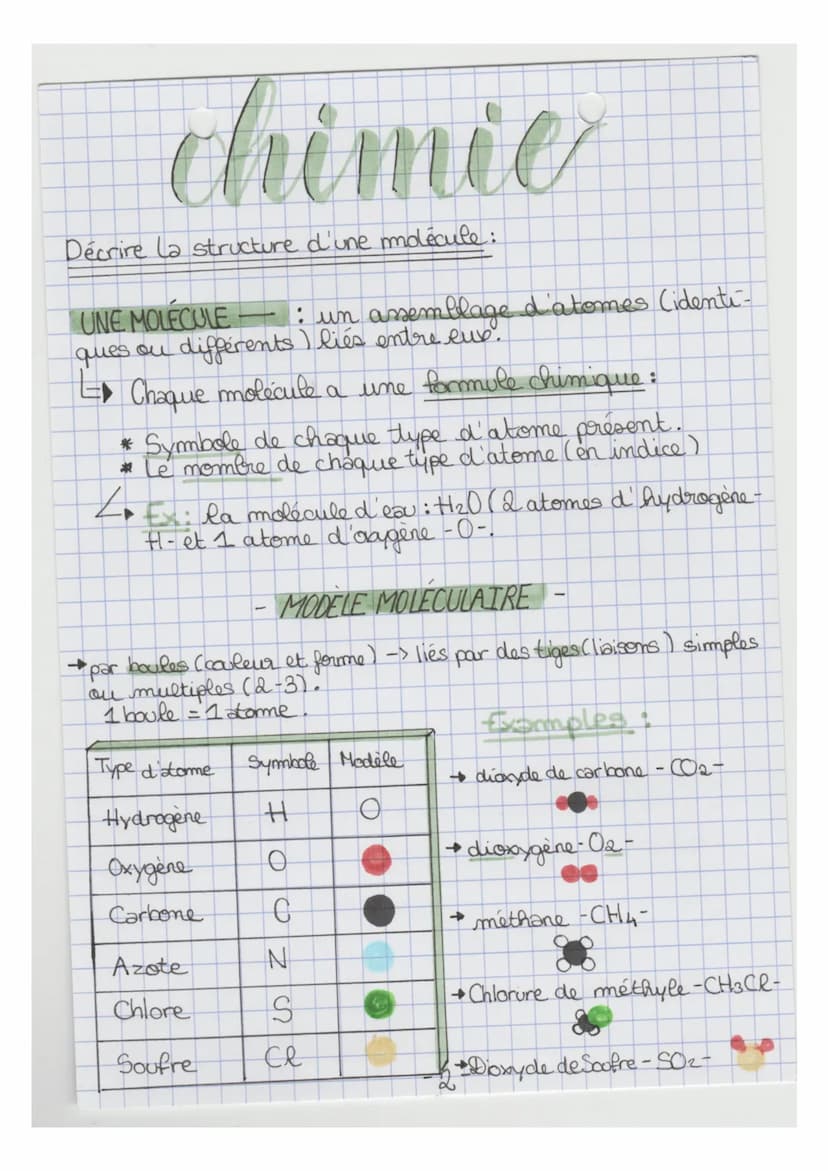 chimie
Décrire la structure d'une molécule :
UNE MOLÉCULE — : un assemblage d'atomes (identi-
ques ou différents) liés entre eux.
↳ Chaque molécule a une formule chimique :
* Symbole de chaque type d'atome présent.
* Le nombre de chaque type d'atome (en indice)
↳ Ex : la molécule d'eau : H2O (2 atomes d'hydrogène -
H - et 1 atome d'oxygène - O -.
- MODÈLE MOLÉCULAIRE -
→ par boules (couleur et forme) -> liés par des tiges (liaisons) simples
ou multiples (2-3).
1 boule = 1 atome.
Type d'atome Symbole Modèle
Hydrogène H
Oxygène O
Carbone C
Azote N
Chlore S
Soufre Cl
Examples :
→ dioxyde de carbone - CO2 -
→ dioxygène - O2 -
→ méthane - CH4 -
→ Chlorure de méthyle - CH3Cl -
→ Dioxyde de Soufre - SO2 -
- 2